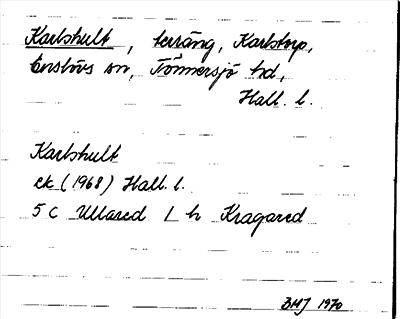 Karlshult, terräng, Karlstorp,
Enslövs sn, Tönnersjö hd,
Hall. l.
Karlshult
ek (1968) Hall. l.
5 C Ullared 1 h Kragared
BHJ 1970